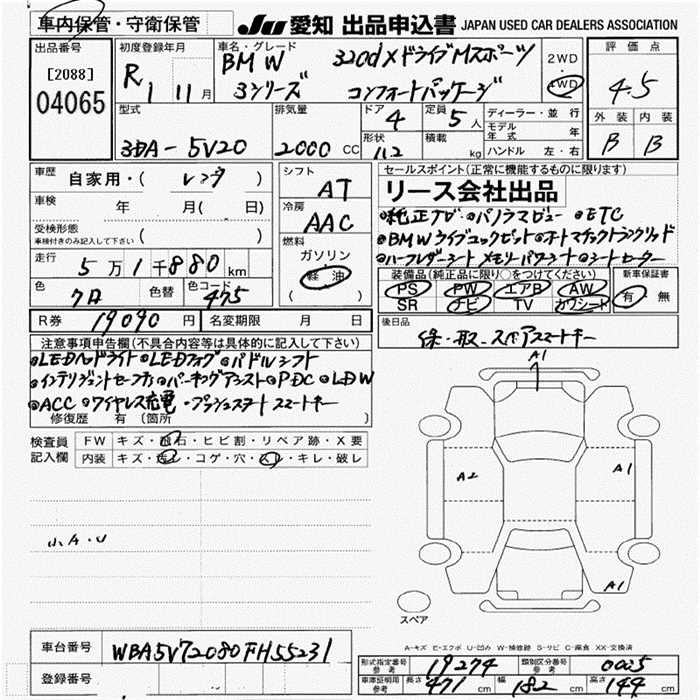 車内保管・守衛保管
JU 愛知 出品申込書 JAPAN USED CAR DEALERS ASSOCIATION
出品番号 [2088] 04065
初度登録年月 R 1 11月
車名・グレード BMW 3シリーズ 320d xドライブMスポーツ コンフォートパッケージ
2WD 4WD
評価点 4.5
外装 内装
B B
型式 3DA-5V20
排気量 2000 CC
ドア 4
形状
定員 5人
積載 kg
ディーラー・並行
モデル年式 年
ハンドル 左・右
車歴 自家用・( レンタ )
車検 年 月( 日)
受検形態 ( )
車検付きのみ記入して下さい
走行 5万1千880km
色 クロ 色替 色コード 475
シフト AT
冷房 AAC
燃料 ガソリン 軽油
( )
セールスポイント(正常に機能するものに限ります)
リース会社出品
•純正ナビ •パノラマビュー •ETC
•BMWライブコックピット •オートマチックトランクリッド
•ハーフレザーシート メモリーパワーシート •シートヒーター
装備品(純正品に限り○をつけてください)
PS PW エアB AW
SR ナビ TV カワシート
新車保証書 有 無
R券 19090円 名変期限 月 日
後日品 保・取・スペアスマートキー
注意事項申告欄(不具合内容等は具体的に記入して下さい)
•LEDヘッドライト •LEDフォグ •パドルシフト
•インテリジェントセーフティ •パーキングアシスト •PDC •LDW
•ACC •ワイヤレス充電 •プッシュスタート スマートキー
修復歴 有 (箇所 )
検査員記入欄
FW キズ・飛石・ヒビ割・リペア跡・X要
内装 キズ・汚レ・コゲ・穴・スレ・キレ・破レ
小A・U
A1
A2
A1
A1
スペア
A-キズ E-エクボ U-凹み W-補修跡 S-サビ C-腐食 XX-交換済
車台番号 WBA5V72080FH55231
登録番号
形式指定番号 参考 19274 類別区分番号 参考 0005
車庫証明用 参考 長さ 471 cm 幅 182 cm 高さ 144 cm